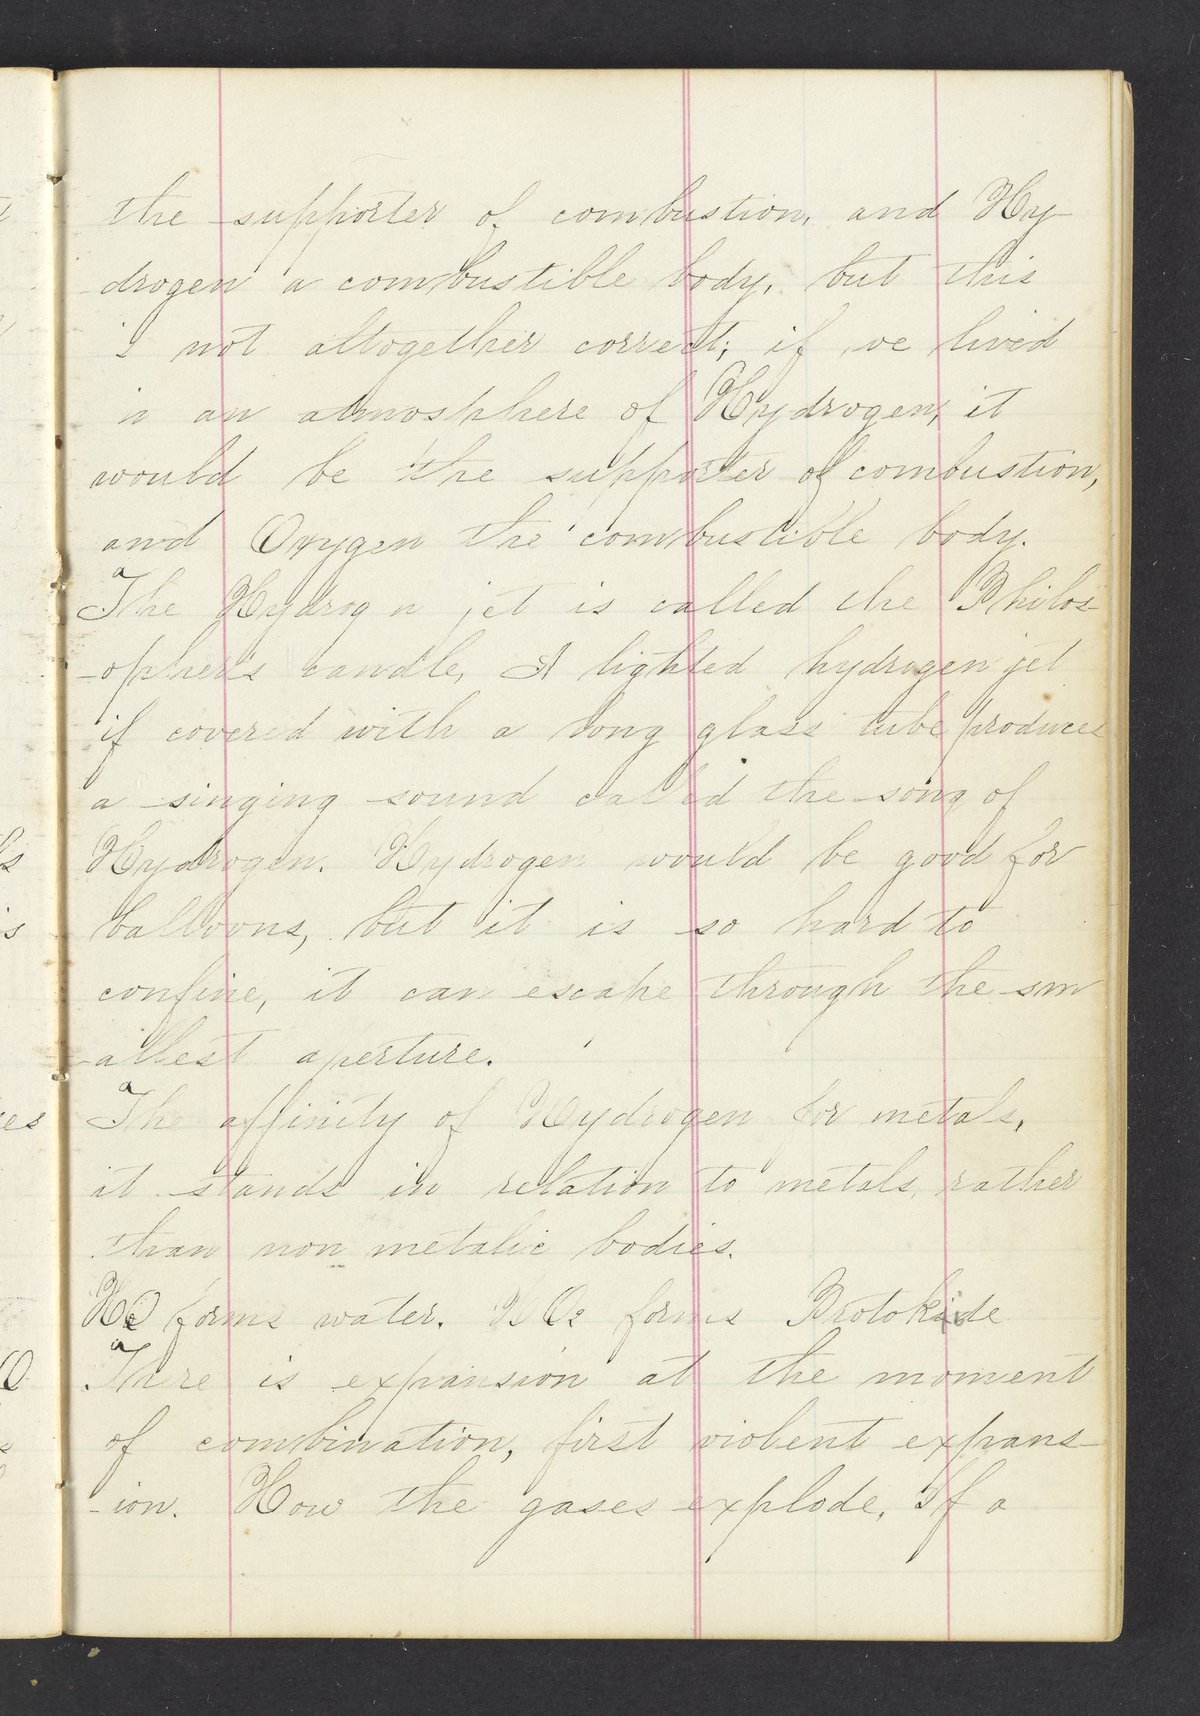 the supporter of combustion, and Hy-
drogen a combustible body, but this
is not altogether correct; if we lived
in an atmosphere of Hydrogen, it
would be the supporter of combustion,
and Oxygen the combustible body.
The Hydrogen jet is called the Philos-
-opher's candle, A lighted hydrogen jet
if covered with a long glass tube produces
a singing sound called the song of
Hydrogen. Hydrogen would be good for
balloons, but it is so hard to
confine, it can escape through the sm
-allest aperture.
The affinity of Hydrogen for metals,
it stands in relation to metals, rather
than non metalic bodies.
HO forms water. forms
There is expansion at the moment
of combination, first violent expans-
-ion. How the gases explode, If a